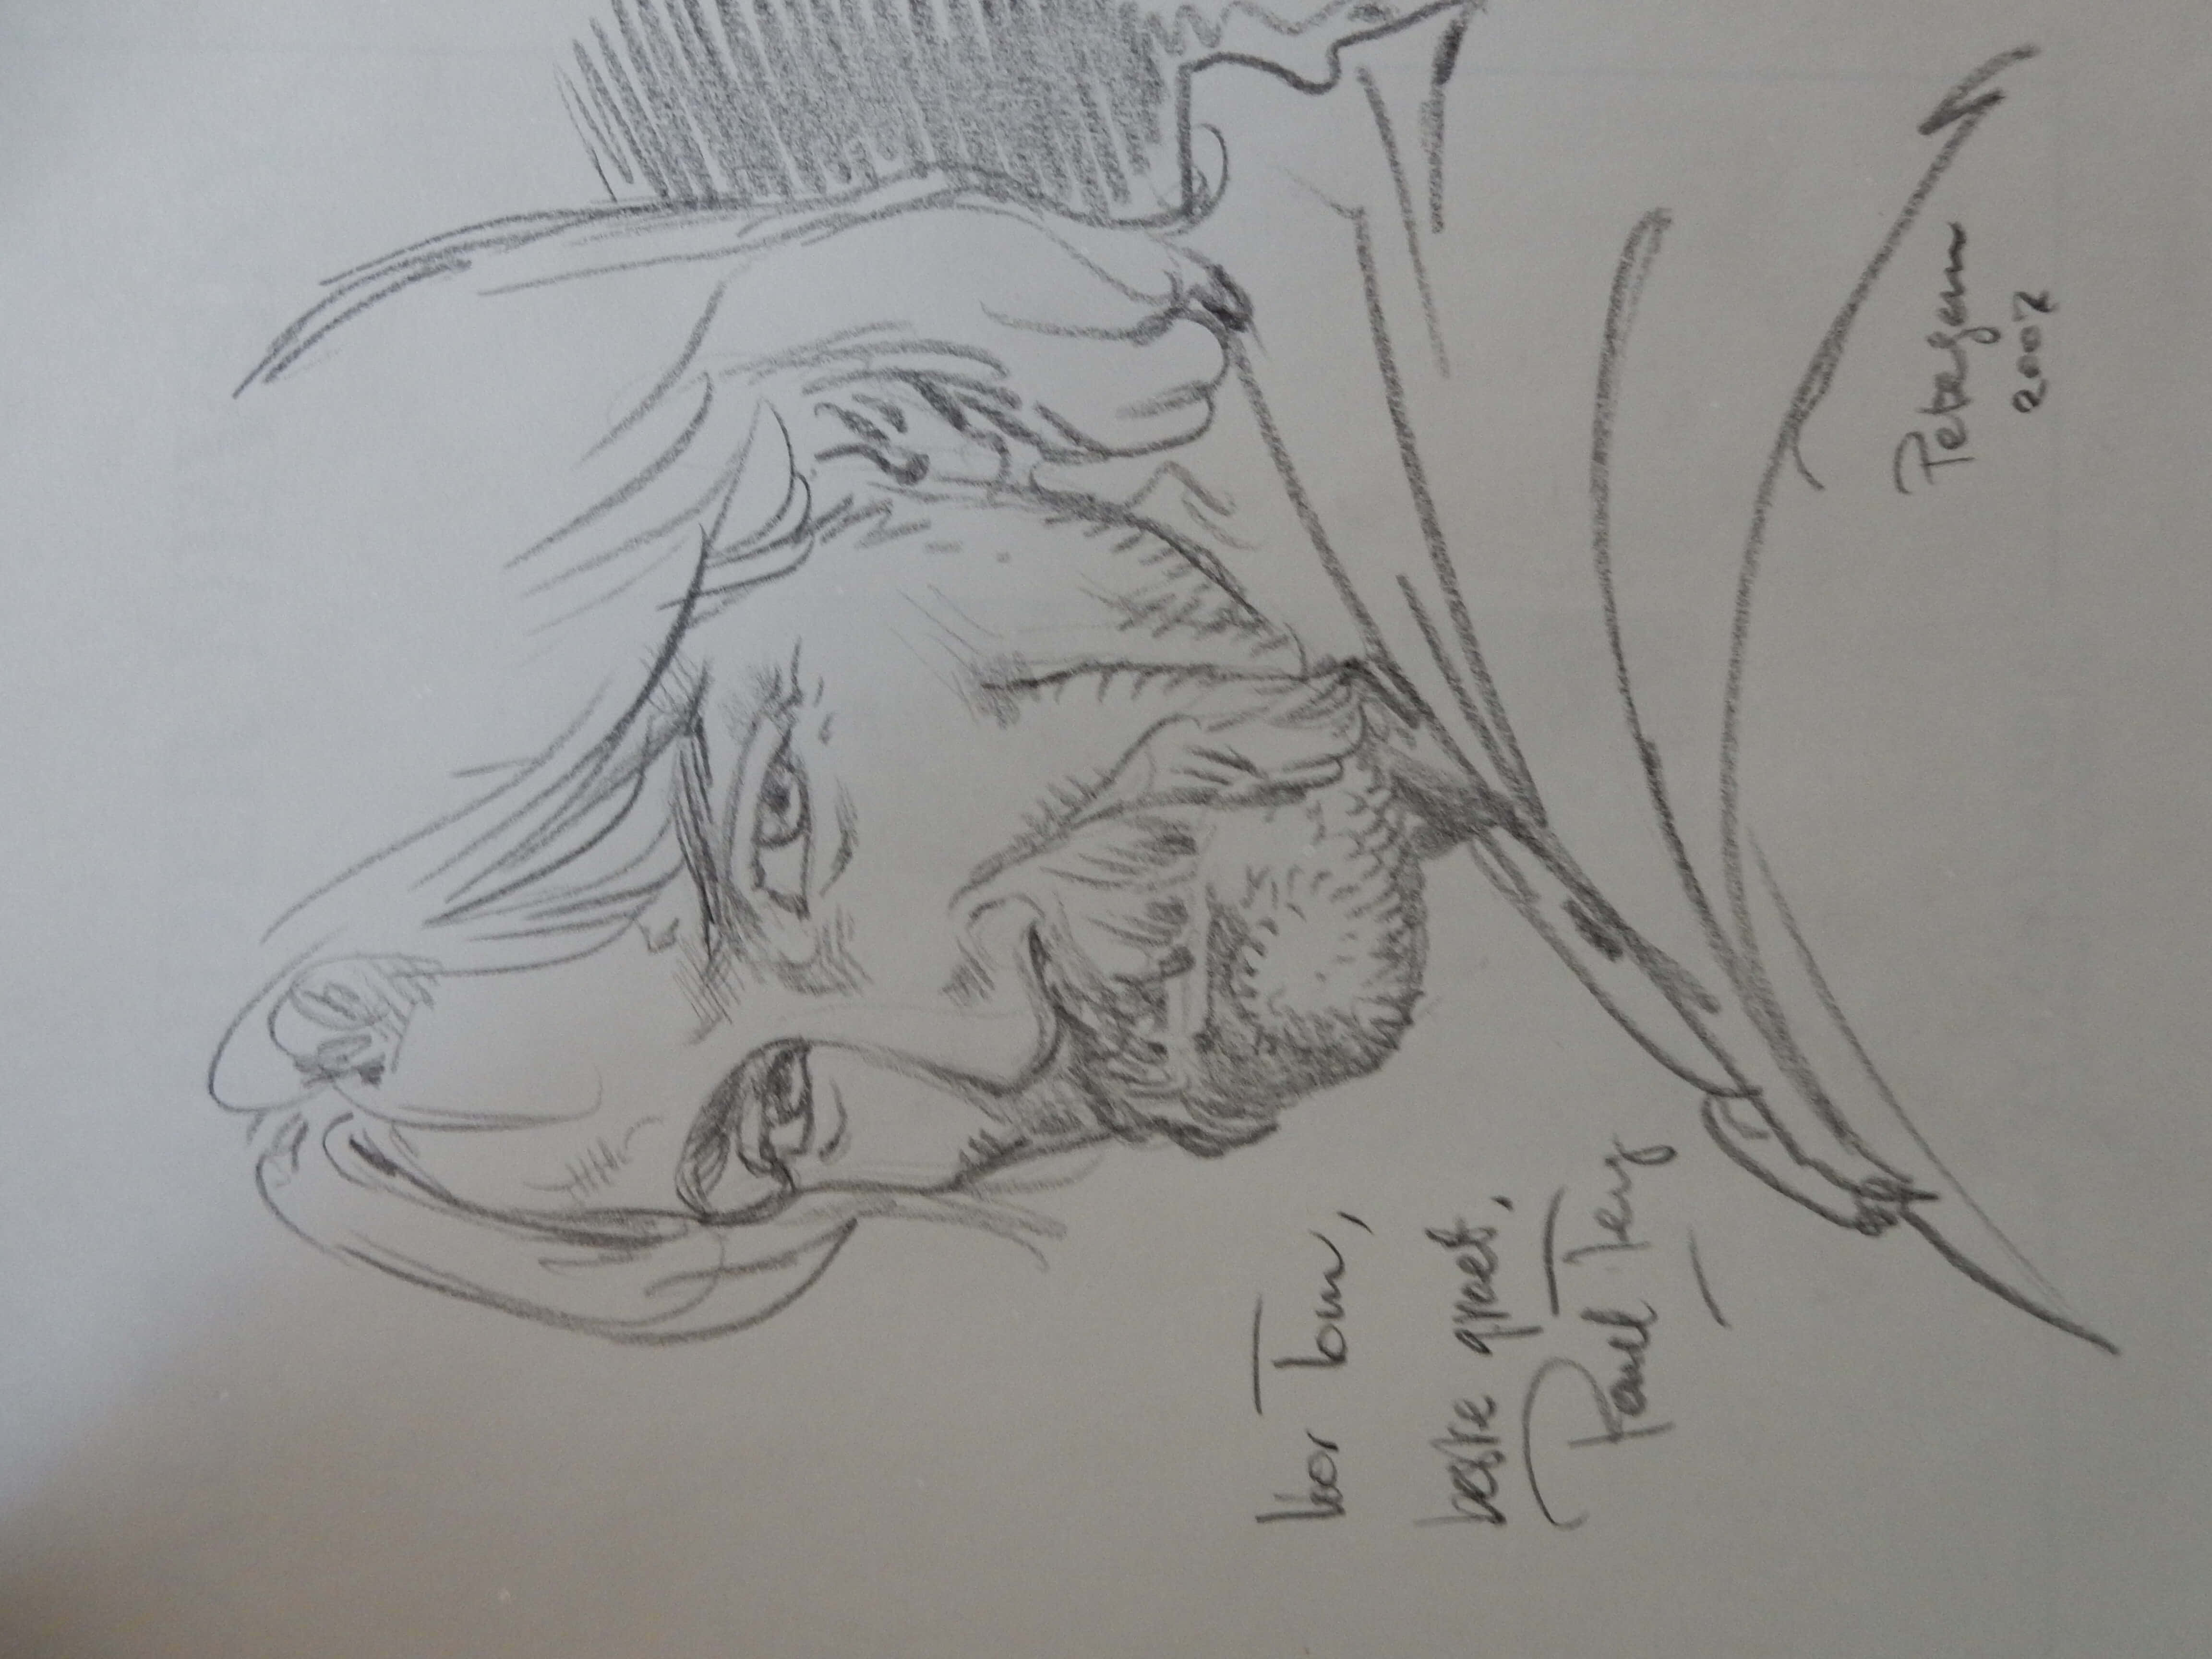 Voor Tom,
beste groet,
Paul Teng
Petegem
2007